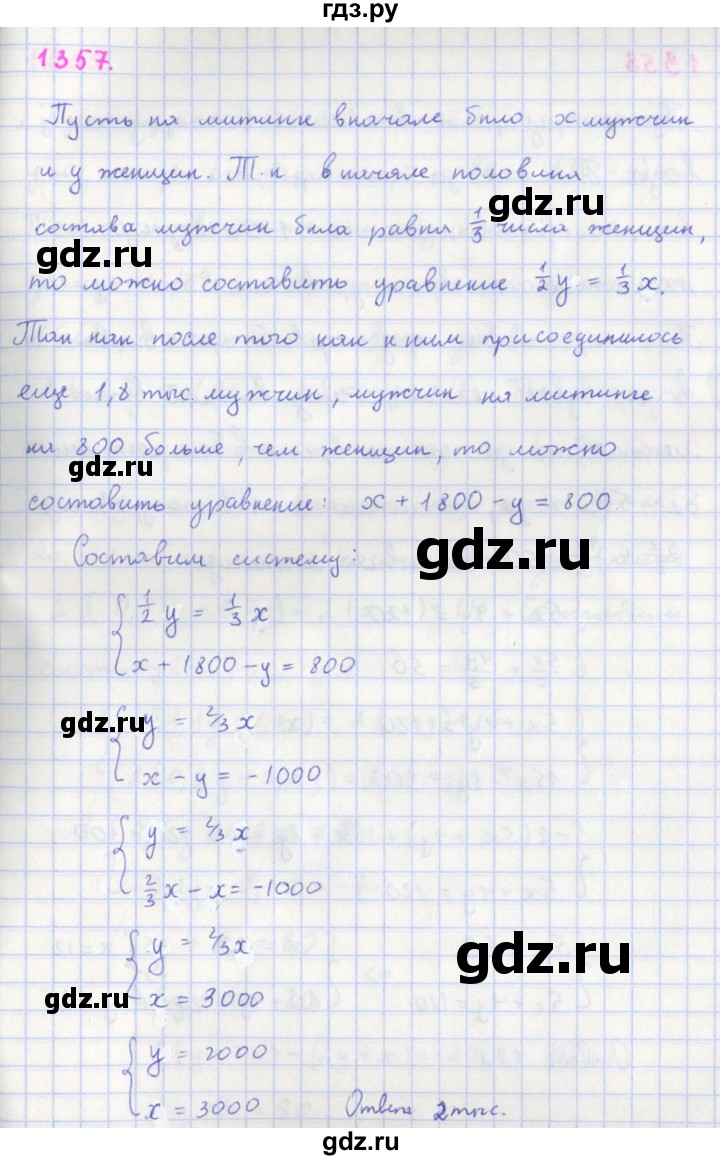 гдз.ру
1357.
Пусть на митинге вначале было x мужчин
и y женщин. Т.к вначале половина
gdz.ru
состава мужчин была равна 1/3 числа женщин,
gdz.ru
то можно составить уравнение 1/2 y = 1/3 x.
Так как после того как к ним присоединилось
еще 1,8 тыс. мужчин, мужчин на митинге
на 800 больше, чем женщин, то можно
gdz.ru
составить уравнение: x + 1800 - y = 800.
gdz.ru
Составим систему:
1/2 y = 1/3 x
x + 1800 - y = 800
gdz.ru
y = 2/3 x
x - y = -1000
y = 2/3 x
2/3 x - x = -1000
y = 2/3 x
gdz.ru
gdz.ru
- x = 3000
y = 2000
x = 3000 Ответ 2 тыс.
gdz.ru
gdz.ru